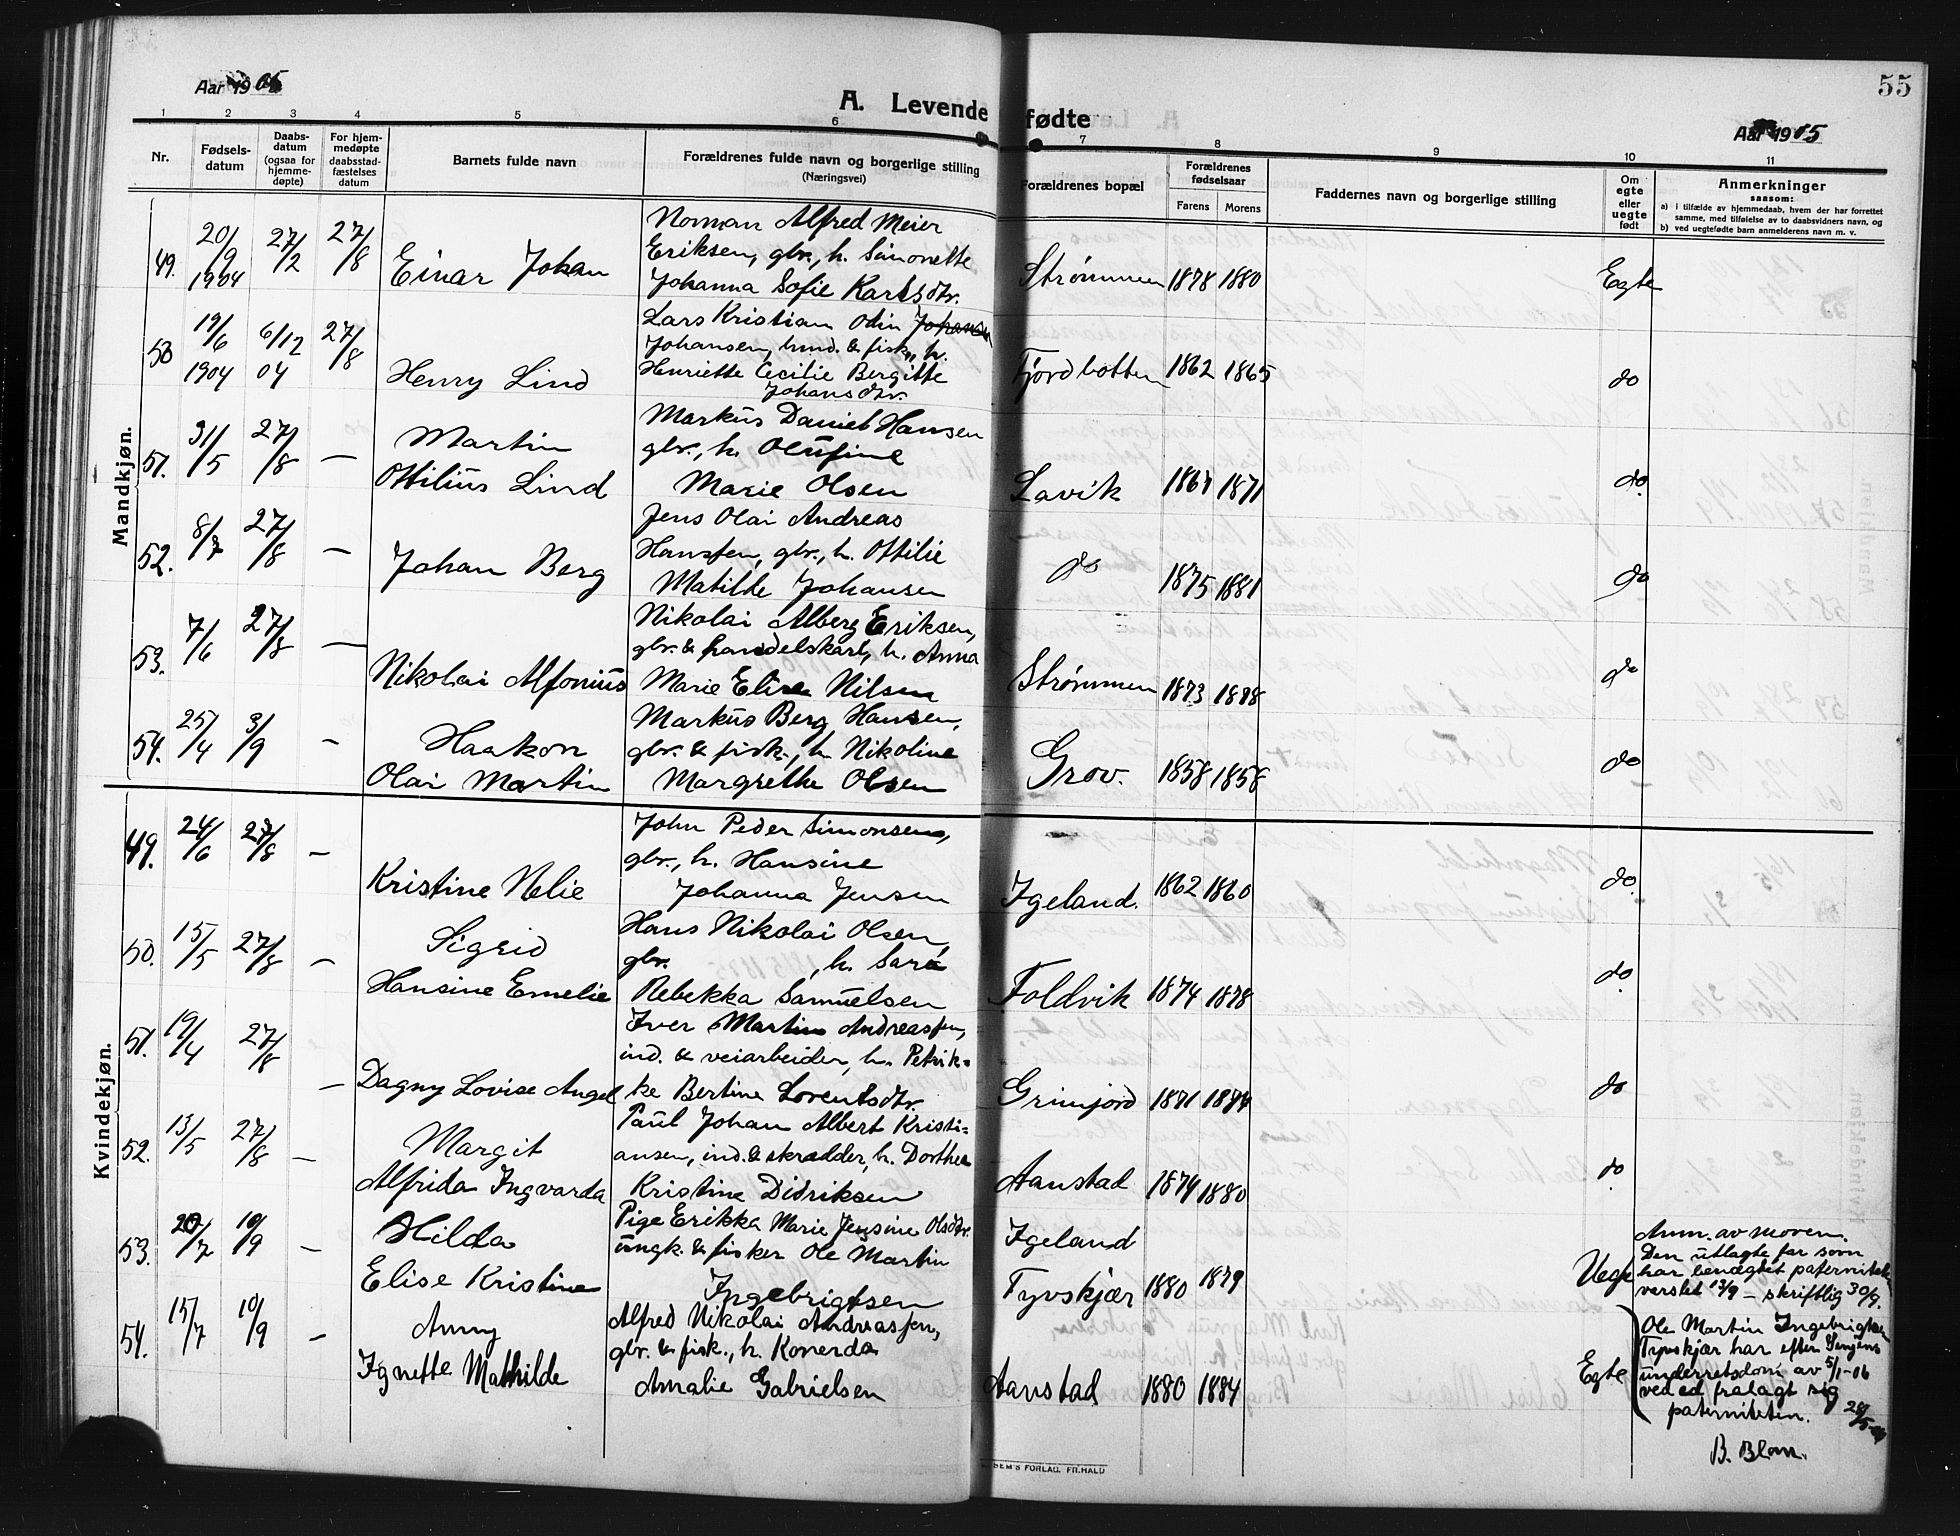 55
Aar 1905
A. Levende fødte
Aar 1905
1 2 3 4 5 6 7 8 9 10 11
Nr.
Fødsels-
datum
Daabs-
datum
(ogsaa for
hjemme-
døpte)
For hjem-
medøpte
daabsstad-
fæstelses
datum
Barnets fulde navn
Forældrenes fulde navn og borgerlige stilling
(Næringsvei)
Forældrenes bopæl
Forældrenes
fødselsaar
Farens Morens
Faddernes navn og borgerlige stilling
Om
egte
eller
uegte
født
Anmerkninger
saasom:
a) i tilfælde av hjemmedaab, hvem der har forrettet
samme, med tilføielse av to daabsvidners navn, og
b) ved uegtefødte barn anmelderens navn m. v.
Mandkjøn.
49. 20/9 1904 27/2 27/8 Einar Johan
Norman Alfred Meier
Eriksen, gbr., h. Simonette
Johanna Sofie Karlsdtr.
Strømmen 1878 1880 Egte
50 19/6 1904 6/12 04 27/8 Henry Lind
Lars Kristian Odin Johansen
Johansen, lmd. & fisk., h.
Henriette Cecilie Bergitte
Johansdtr.
Fjordbotten 1862 1865 do
51. 31/5 27/8 — Martin
Ottilius Lind
Markus Daniel Hansen
gbr., h. Olufine
Marie Olsen
Lavik 1867 1871 do.
52. 8/7 27/8 — Johan Berg
Jens Olai Andreas
Hansen, gbr., h. Ottilie
Matilde Johansen
do 1875 1881 do
53. 7/6 27/8 — Nikolai Alfonius
Nikolai Alberg Eriksen,
gbr. & handelskarl, h. Anna
Marie Elise Nilsen
Strømmen 1873 1888 do
54. 25/4 3/9 — Haakon
Olai Martin
Markus Berg Hansen,
gbr. & fisk., h. Nikoline
Margrethe Olsen
Grov. 1858 1858 do
Kvindekjøn.
49. 24/6 27/8 — Kristine Nelie
John Peder Simonsen,
gbr., h. Hansine
Johanna Jensen
Igeland. 1862 1860 do.
50. 15/5 27/8 — Sigrid
Hansine Emelie
Hans Nikolai Olsen,
gbr. , h. Sara
Rebekka Samuelsen
Foldvik 1874 1878 do.
51. 19/4 27/8 — Dagny Lovise Angel
Iver Martin Andreassen,
ind. & veiarbeider, h. Petrik-
ke Bertine Lorentsdtr.
Grimjord 1871 1874 do
52. 13/5 27/8 — Margit
Alfrida Ingvarda
Paul Johan Albert Kristi-
ansen, ind. & skrædder, h. Dorthea
Kristine Didriksen
Aanstad 1879 1880 do.
53. 20/7 10/9 — Hilda
Elise Kristine
Pige Erikka Marie Jensine Olsdtr.
ungk. & fisker Ole Martin
Ingebrigtsen
Igeland
Tyvskjær 1880 1879 Uegte
Anm. av moren.
Den utlagte far som
har benægtet paterniteten
varslet 13/9 — skriftlig 30/9.
Ole Martin Ingebrigtsen
Tyvskjær har efter Senjens
underretsdom av 5/1-06
ved ed fralagt sig
paterniteten.
B. Blom.
54. 15/7 10/9 — Anny
Ignette Mathilde
Alfred Nikolai Andreassen,
gbr. & fisk., h. Konerda
Amalie Gabrielsen
Aanstad 1880 1884 Egte
SEM'S FORLAG. FR. HALD